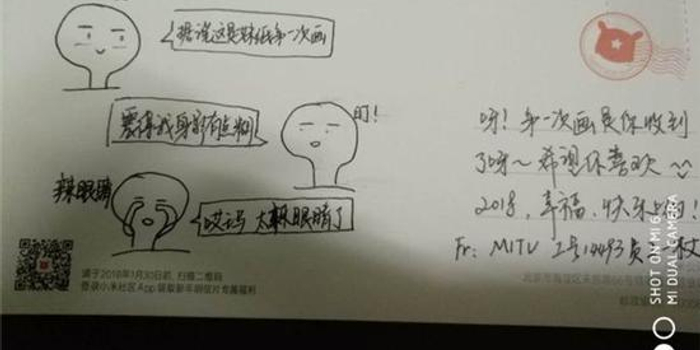 据说这是妹纸第一次画
害得我身影有点糊
盯！
辣眼睛
哎妈 太辣眼睛了
呀！第一次画具你收到
了呀～希望你喜欢
2018，幸福、快乐
Fr：MITU 工号14493员 一枚
请于2018年1月30日前，扫描二维码
登录小米社区App 领取新年明信片专属福利
SHOT ON MI 6
MI DUAL CAMERA